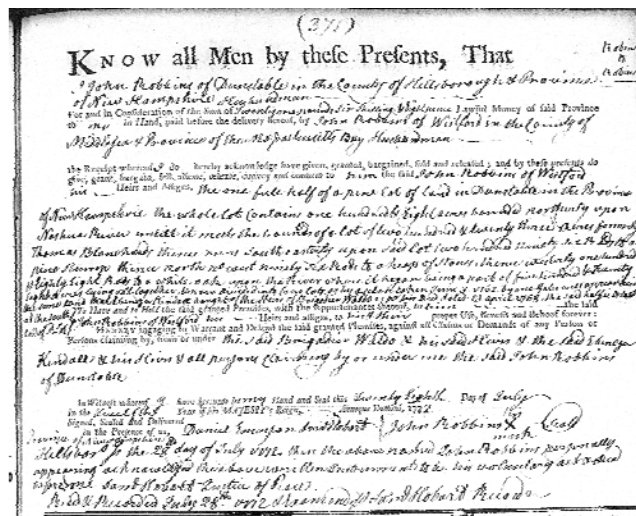 (375)
Robins
to
Robins
KNOW all Men by these Presents, That
I John Robbins of Dunstable in the County of Hillsborough & Province
of New Hampshire Husbandman
For and in Consideration of the Sum of Twenty one pounds Six Shillings & Eight pence Lawful Money of said Province
to me in Hand, paid before the delivery hereof, by John Robbins of Westford in the County of
Middlesex & Province of the Massachusetts Bay Husbandman
the Receipt whereof I do hereby acknowledge have given, granted, bargained, sold and released; and by these presents do
give, grant, bargain, sell, aliene, release, convey and confirm to him the said John Robbins of Westford
his Heirs and Assigns, the one full half of a pine Lot of land in Dunstable in the Province
of New Hampshire the whole lot Contains one hundred & Eight acres bounded northerly upon
Nashua River until it meets the bounds of a lot of two hundred & twenty three acres formerly
Thomas Blanchards thence runs South easterly upon said lot two hundred & ninety six Rods to a
pine Stump thence north west ninety six Rods to a heap of stones thence westerly one hundred
& Eighty Eight Rods to a white oak upon the River where it began being a part of five hundred & Twenty
To Have and to Hold the said granted Premises, with the Appurtenances thereof, to him the said
John Robbins of Westford his Heirs and Assigns, to his & their proper Use, Benefit and Behoof forever:
to Warrant and Defend the said granted Premises, against all Claims or Demands of any Person or
Persons claiming by, from or under the said Brigadier Waldo & his said Heirs & the said Ebenezer
Kendall & his Heirs & all persons Claiming by or under me the said John Robbins
of Dunstable
In Witness whereof I have hereunto set my Hand and Seal this twenty Eighth Day of July
in the Year of his MAJESTY's Reign, Annoque Domini, 1772
Signed, Sealed and Delivered
in the Presence of us, Daniel Emerson John Robbins his mark Seal
Province of New Hampshire
Hillsboro ss the 28 day of July 1772 then the above named John Robbins personally
appearing acknowledged the above written Instrument to be his voluntary act & deed
before me Saml Hobart Justice of Peace
Recd & Recorded July 28th 1772 & Examined by Saml Hobart Recorder